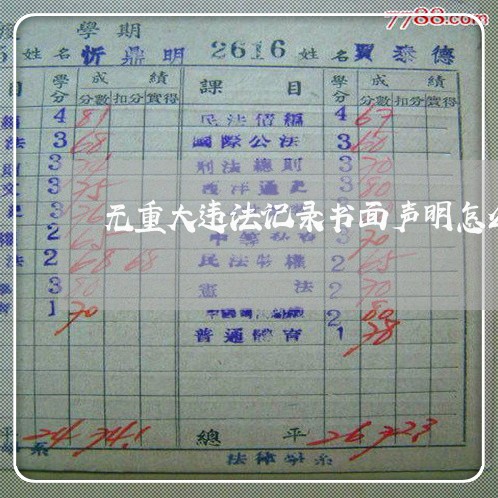 7788.com
學期
姓名 忻鼎明 2616 姓名 賈泰德
目 學分 成績 課目 學分 成績
分數 扣分 實得 分數 扣分 實得
4 81 民法債編 4 67
法 3 68 國際公法 3 60
3 刑法總則 3 70
3 75 西洋通史 3 80
无重大违法记录书面声明怎么
2 65 3 70
法 2 68 68 民法物權 2 65
3 80 憲法 2 70
1 70 2 80
普通體育 1 78
平 24 74.1 總平 26 72.3
系 法律學系